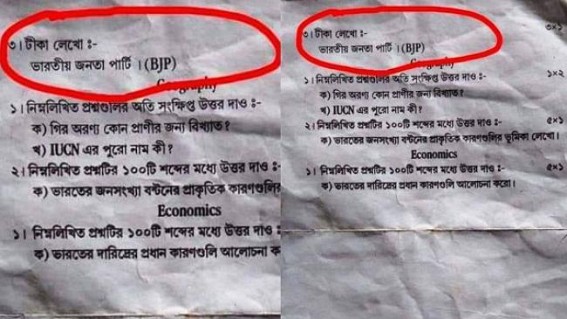 ৩। টীকা লেখো :-
ভারতীয় জনতা পার্টি । (BJP)
Geography
১। নিম্নলিখিত প্রশ্নগুলির অতি সংক্ষিপ্ত উত্তর দাও :-
ক) গির অরণ্য কোন প্রাণীর জন্য বিখ্যাত?
খ) IUCN এর পুরো নাম কী?
২। নিম্নলিখিত প্রশ্নটির ১০০টি শব্দের মধ্যে উত্তর দাও :
ক) ভারতের জনসংখ্যা বণ্টনের প্রাকৃতিক কারণগুলির
Economics
১। নিম্নলিখিত প্রশ্নটির ১০০টি শব্দের মধ্যে উত্তর দাও :
ক) ভারতের দারিদ্রের প্রধান কারণগুলি আলোচনা ক
৩। টীকা লেখো :- ৩×১
ভারতীয় জনতা পার্টি । (BJP)
১। নিম্নলিখিত প্রশ্নগুলির অতি সংক্ষিপ্ত উত্তর দাও :- ১×২
ক) গির অরণ্য কোন প্রাণীর জন্য বিখ্যাত?
খ) IUCN এর পুরো নাম কী?
২। নিম্নলিখিত প্রশ্নটির ১০০টি শব্দের মধ্যে উত্তর দাও :- ৫×১
ক) ভারতের জনসংখ্যা বণ্টনের প্রাকৃতিক কারণগুলির ভূমিকা লেখো।
Economics
১। নিম্নলিখিত প্রশ্নটির ১০০টি শব্দের মধ্যে উত্তর দাও :- ৫×১
ক) ভারতের দারিদ্রের প্রধান কারণগুলি আলোচনা করো।